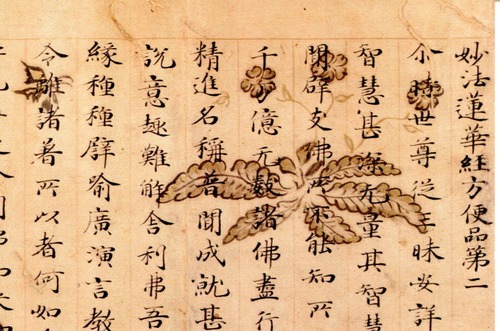 妙法蓮華經方便品第二
尒時世尊從三昧安詳
智慧甚深无量其智慧
聞辟支佛所不能知所
千万億无數諸佛盡行
精進名稱普聞成就甚
說意趣難解舍利弗吾
緣種種譬喻廣演言教
令離諸著所以者何如